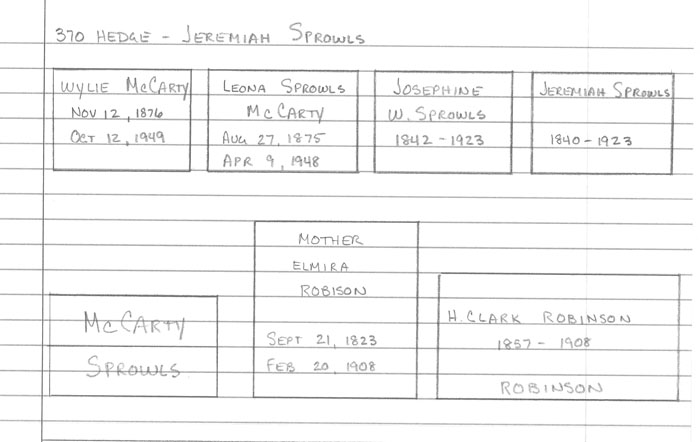 370 HEDGE - JEREMIAH SPROWLS
WYLIE McCARTY
NOV 12, 1876
OCT 12, 1949
LEONA SPROWLS
McCARTY
AUG 27, 1875
APR 9, 1948
JOSEPHINE
W. SPROWLS
1842 - 1923
JEREMIAH SPROWLS
1840 - 1923
McCARTY
SPROWLS
MOTHER
ELMIRA
ROBISON
SEPT 21, 1823
FEB 20, 1908
H. CLARK ROBINSON
1857 - 1908
ROBINSON